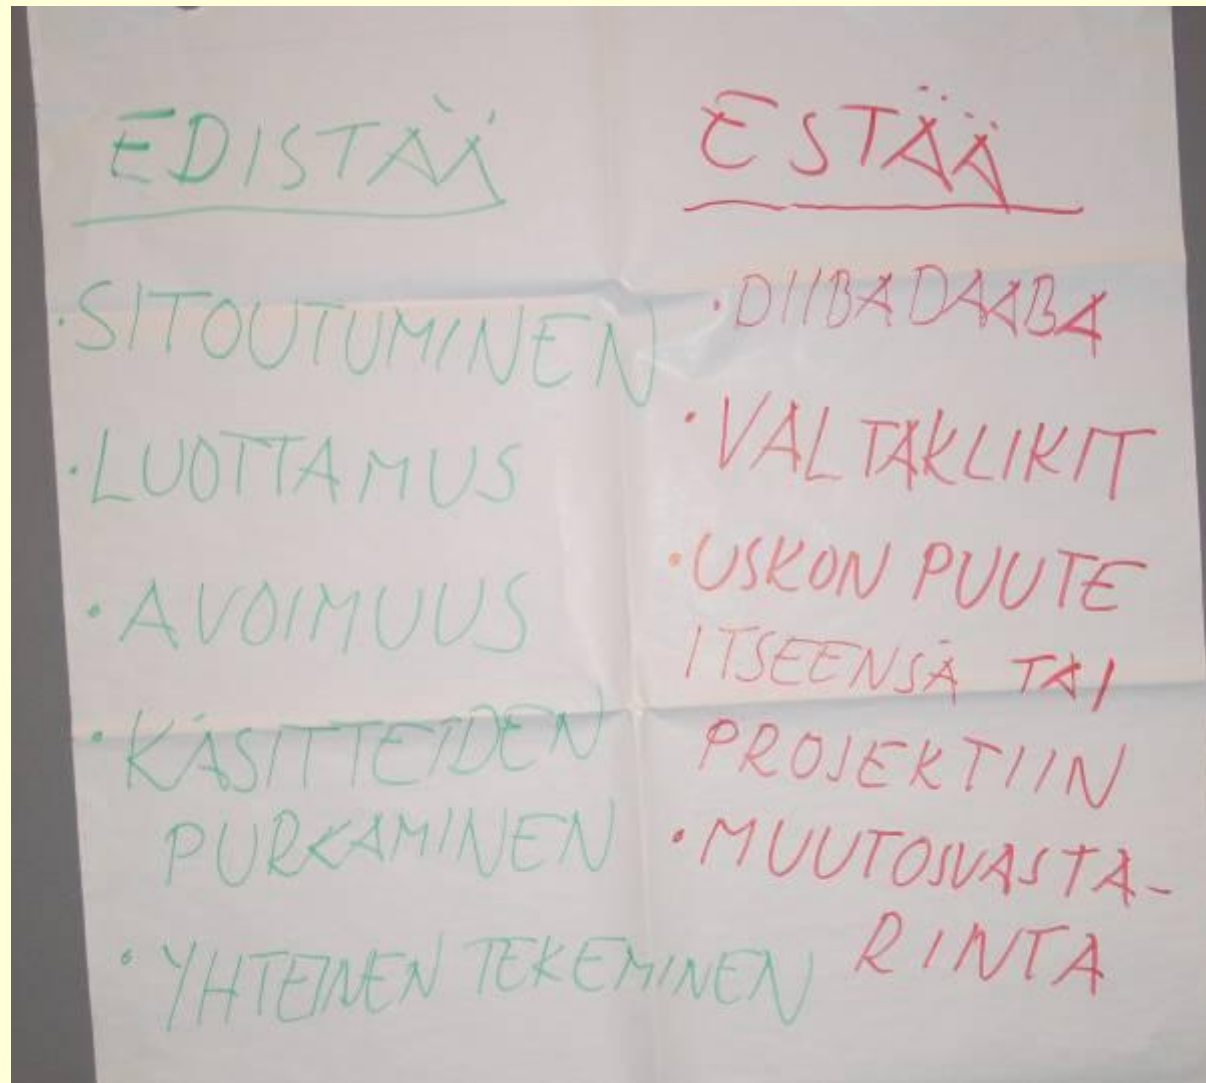 EDISTÄÄ
SITOUTUMINEN
LUOTTAMUS
AVOIMUUS
KÄSITTEIDEN
PURKAMINEN
YHTEINEN TEKEMINEN
ESTÄÄ
DIIBADAABA
VALTAKLIKIT
USKON PUUTE
ITSEENSÄ TAI
PROJEKTIIN
MUUTOSVASTA-
RINTA